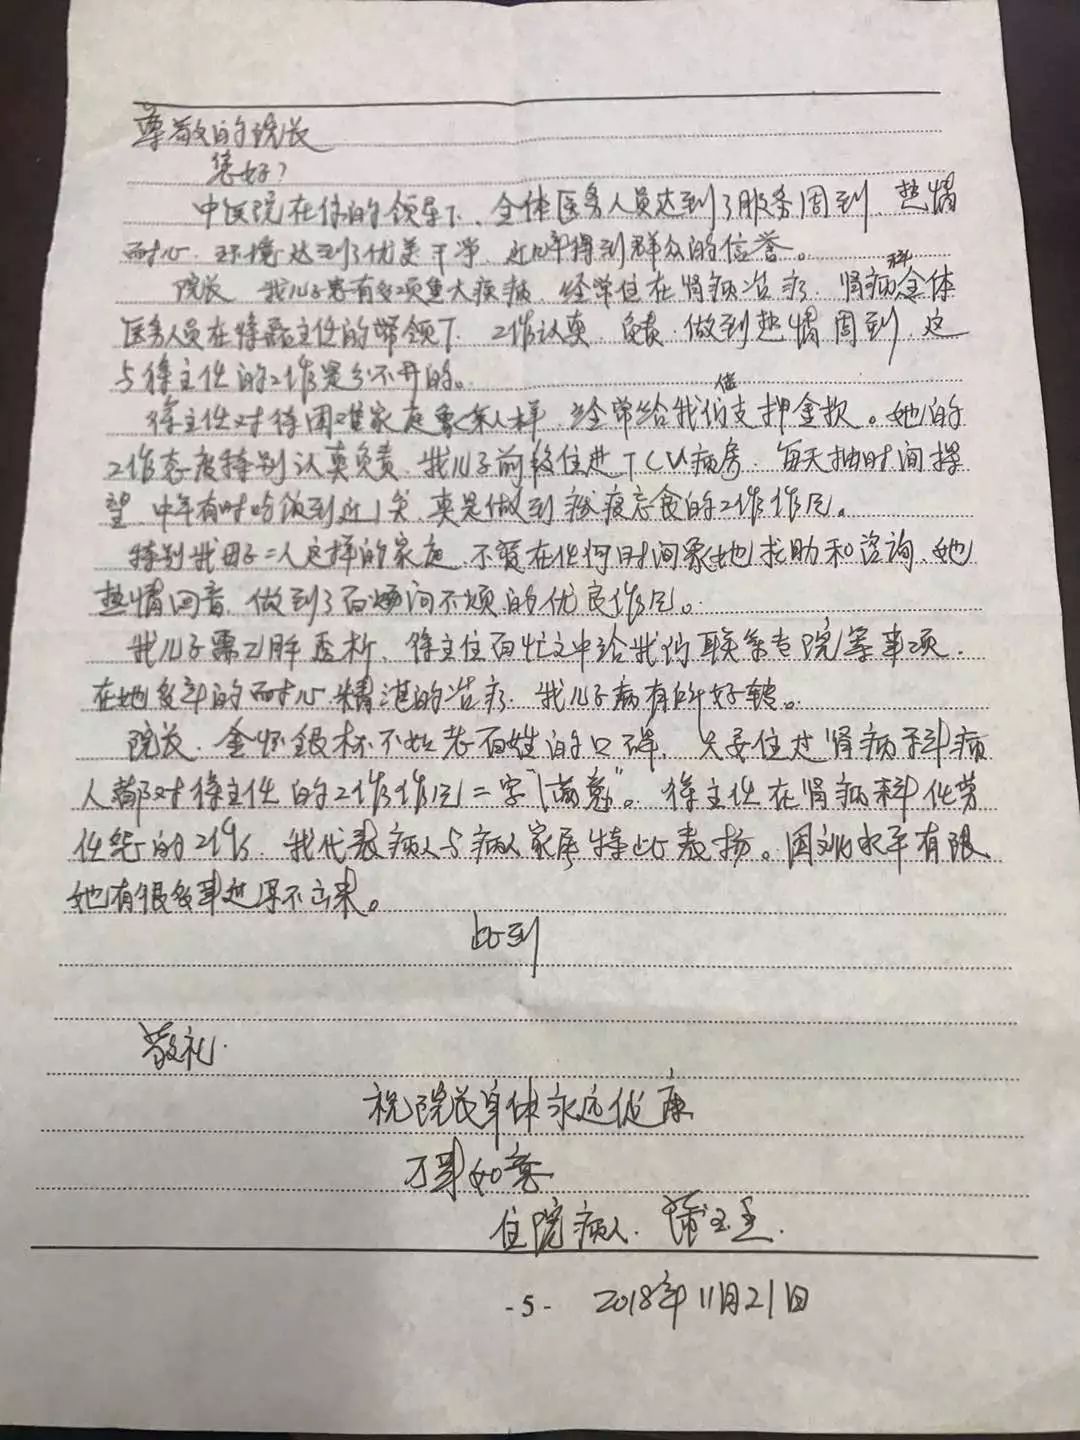 尊敬的院长
您好?
中医院在你的领导下、全体医务人员达到了服务周到、热情
耐心、环境达到了优美干净、近几年得到群众的信誉。
院长、我儿子患有多项重大疾病、经常住在肾病治疗、肾病科全体
医务人员在徐主任的带领下、工作认真、负责、做到热情周到、这
与徐主任的工作是分不开的。
徐主任对待困难家庭象亲人一样、经常给我们借支押金款。她的
工作态度特别认真负责、我儿子前段住进ICU病房、每天抽时间探
望、中午有时吃饭到近1点、真是做到废寝忘食的工作作风。
特别我母子二人这样的家庭、不管在任何时间象她求助和咨询、她
热情回音、做到了百烦问不烦的优良作风。
我儿子需要肝透析、徐主任百忙之中给我们联系专院等事项、
在她多年的耐心、精湛的治疗、我儿子病有所好转。
院长、金杯银杯不如老百姓的口碑、只要住过肾病科病
人都对徐主任的工作作风二字“满意”。徐主任在肾病科任劳
任怨的工作、我代表病人与病人家属特此表扬。因文化水平有限、
她有很多事迹写不出来。
此到
敬礼.
祝院长身体永远健康
万事如意
住院病人.
- 5 - 2018年11月21日